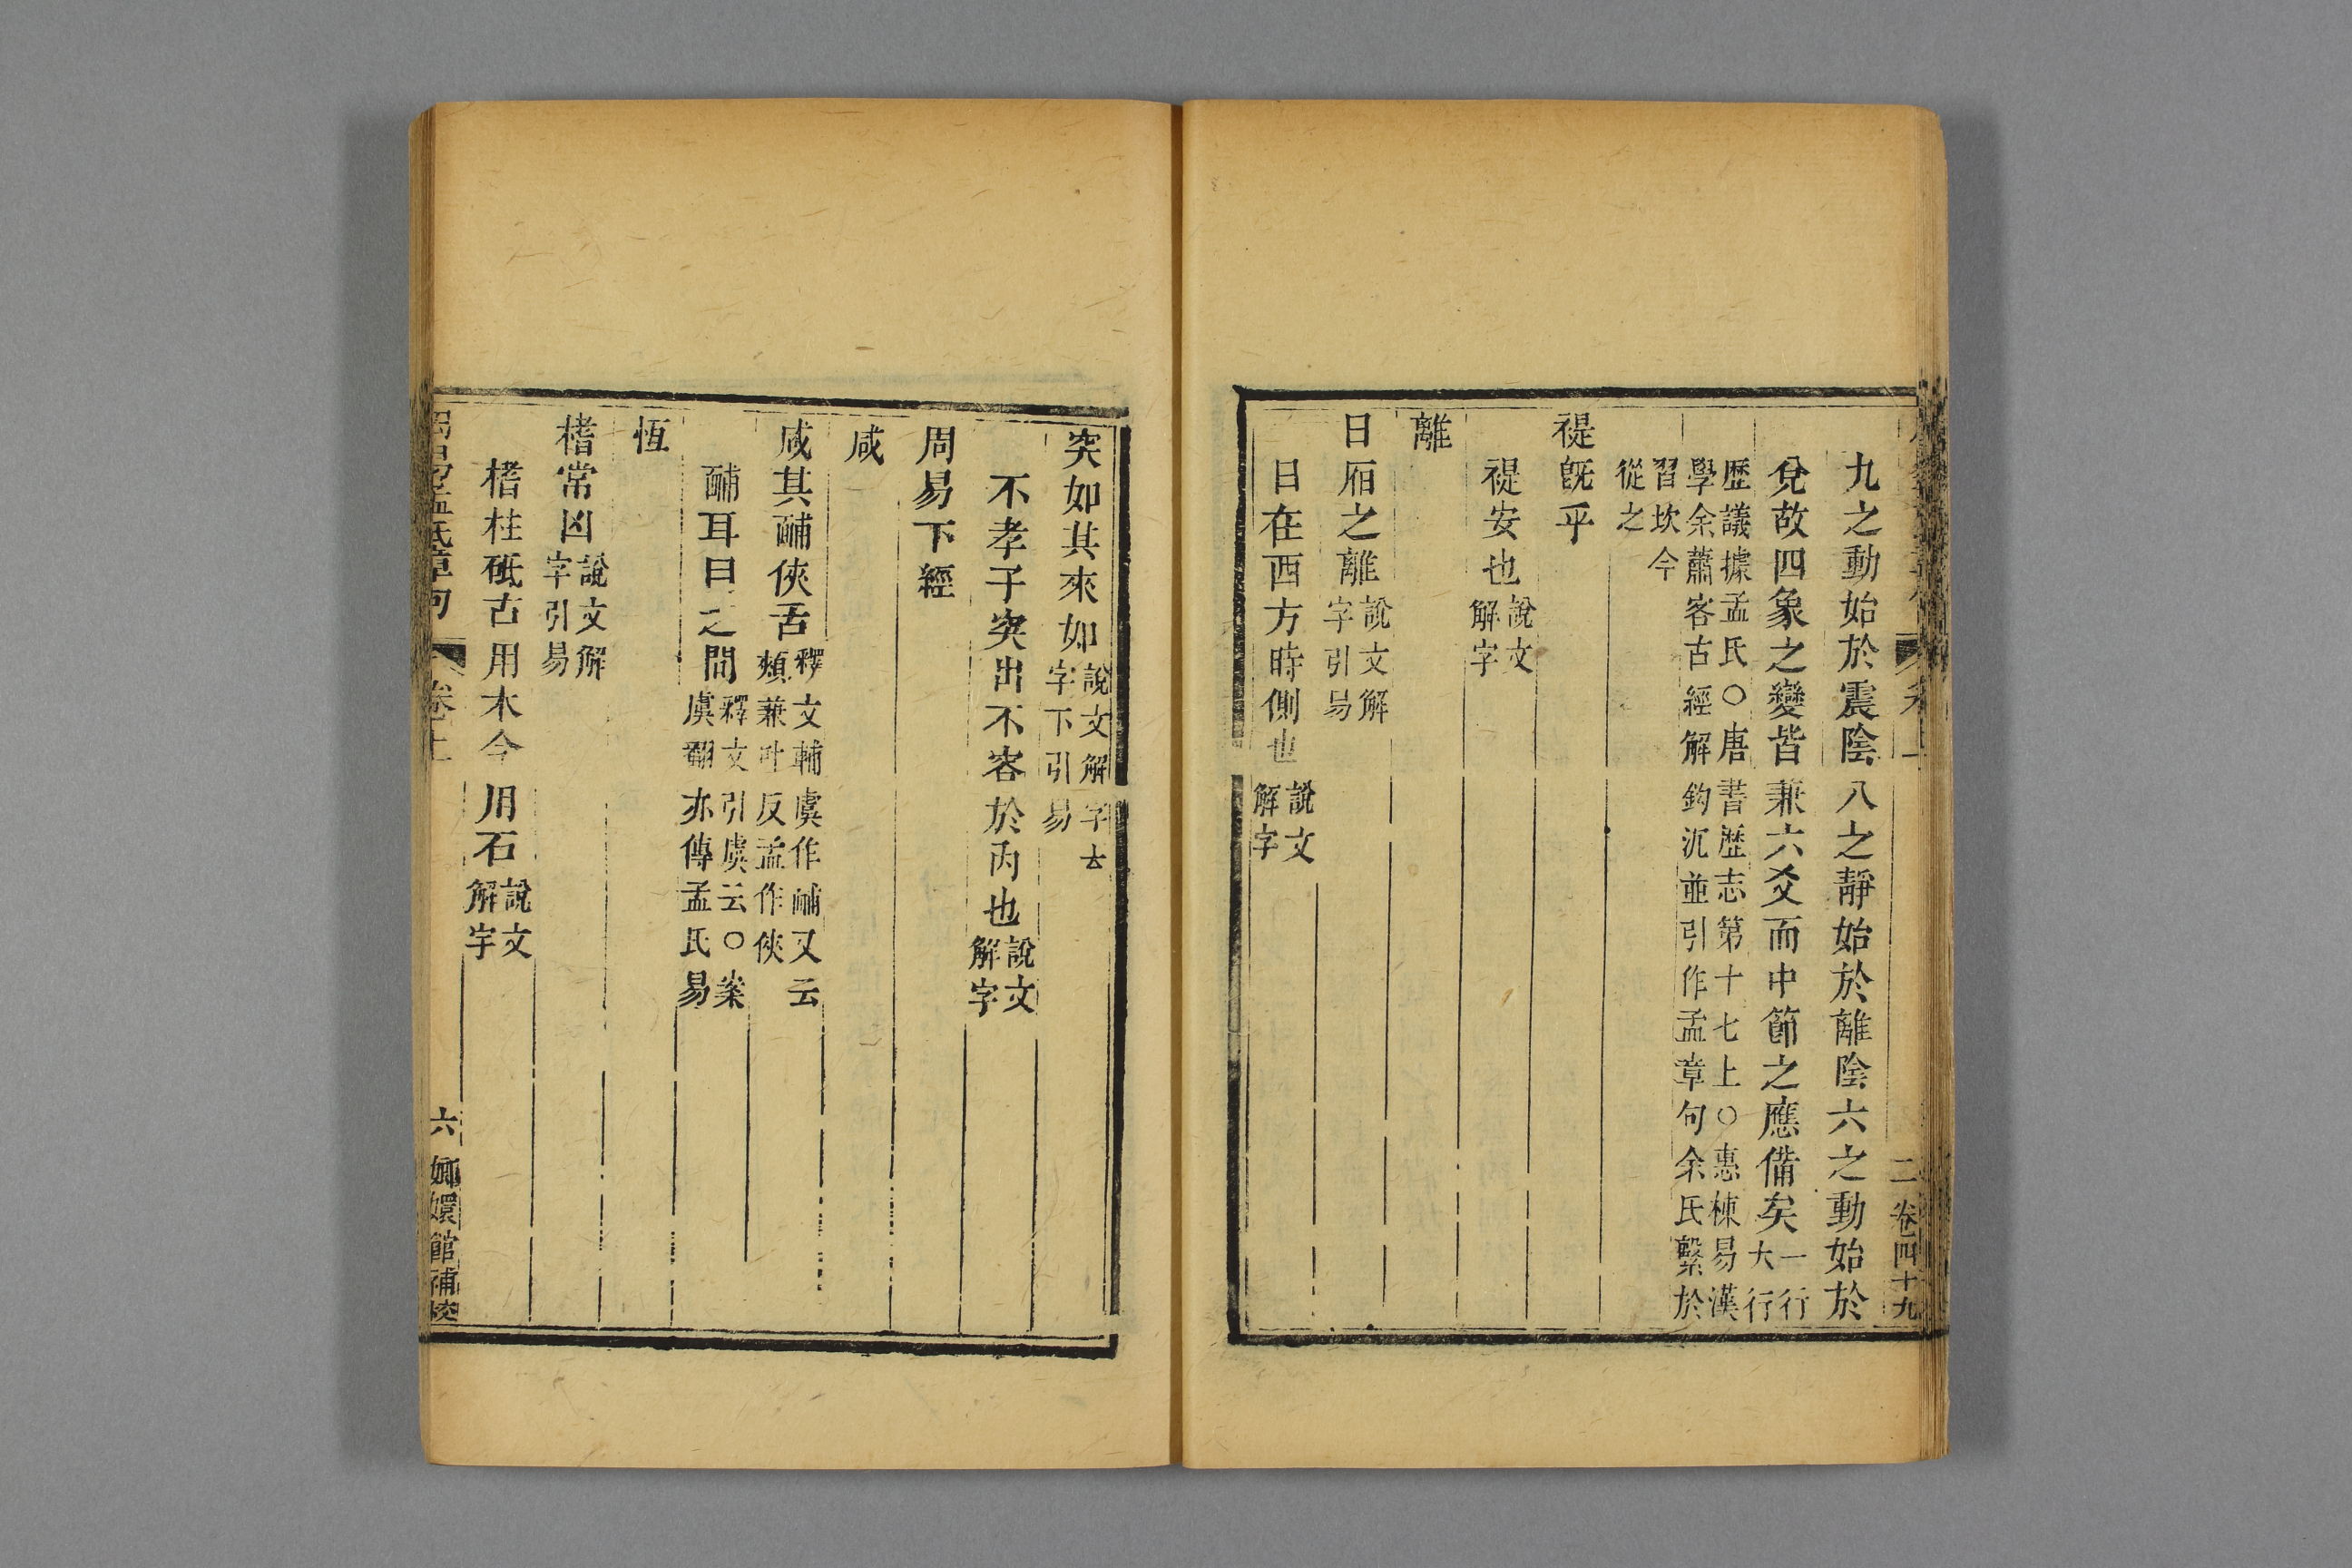 二 卷四十九
九之動始於震陰八之靜始於離陰六之動始於
兌故四象之變皆兼六爻而中節之應備矣一行大行
歷議據孟氏○唐書歷志第十七上○惠棟易漢
學余蕭客古經解鈎沉並引作孟章句余氏繫於
習坎今
從之
禔旣乎
禔安也說文解字
離
日厢之離說文解字引易
日在西方時側也說文解字
突如其來如說文解字𠫓字下引易
不孝子突出不容於內也說文解字
周易下經
咸
咸其䩉俠舌釋文輔虞作䩉又云頰兼叶反孟作俠
䩉耳目之間釋文引虞云○案虞翻亦傳孟氏易
恆
榰常凶說文解字引易
榰柱砥古用木今用石說文解字
周易孟氏章句 卷上 六 嫏嬛館補校